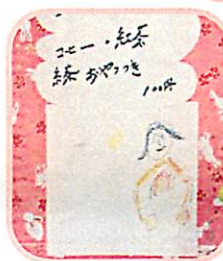 コーヒー・紅茶
緑茶 おやつつき
100円